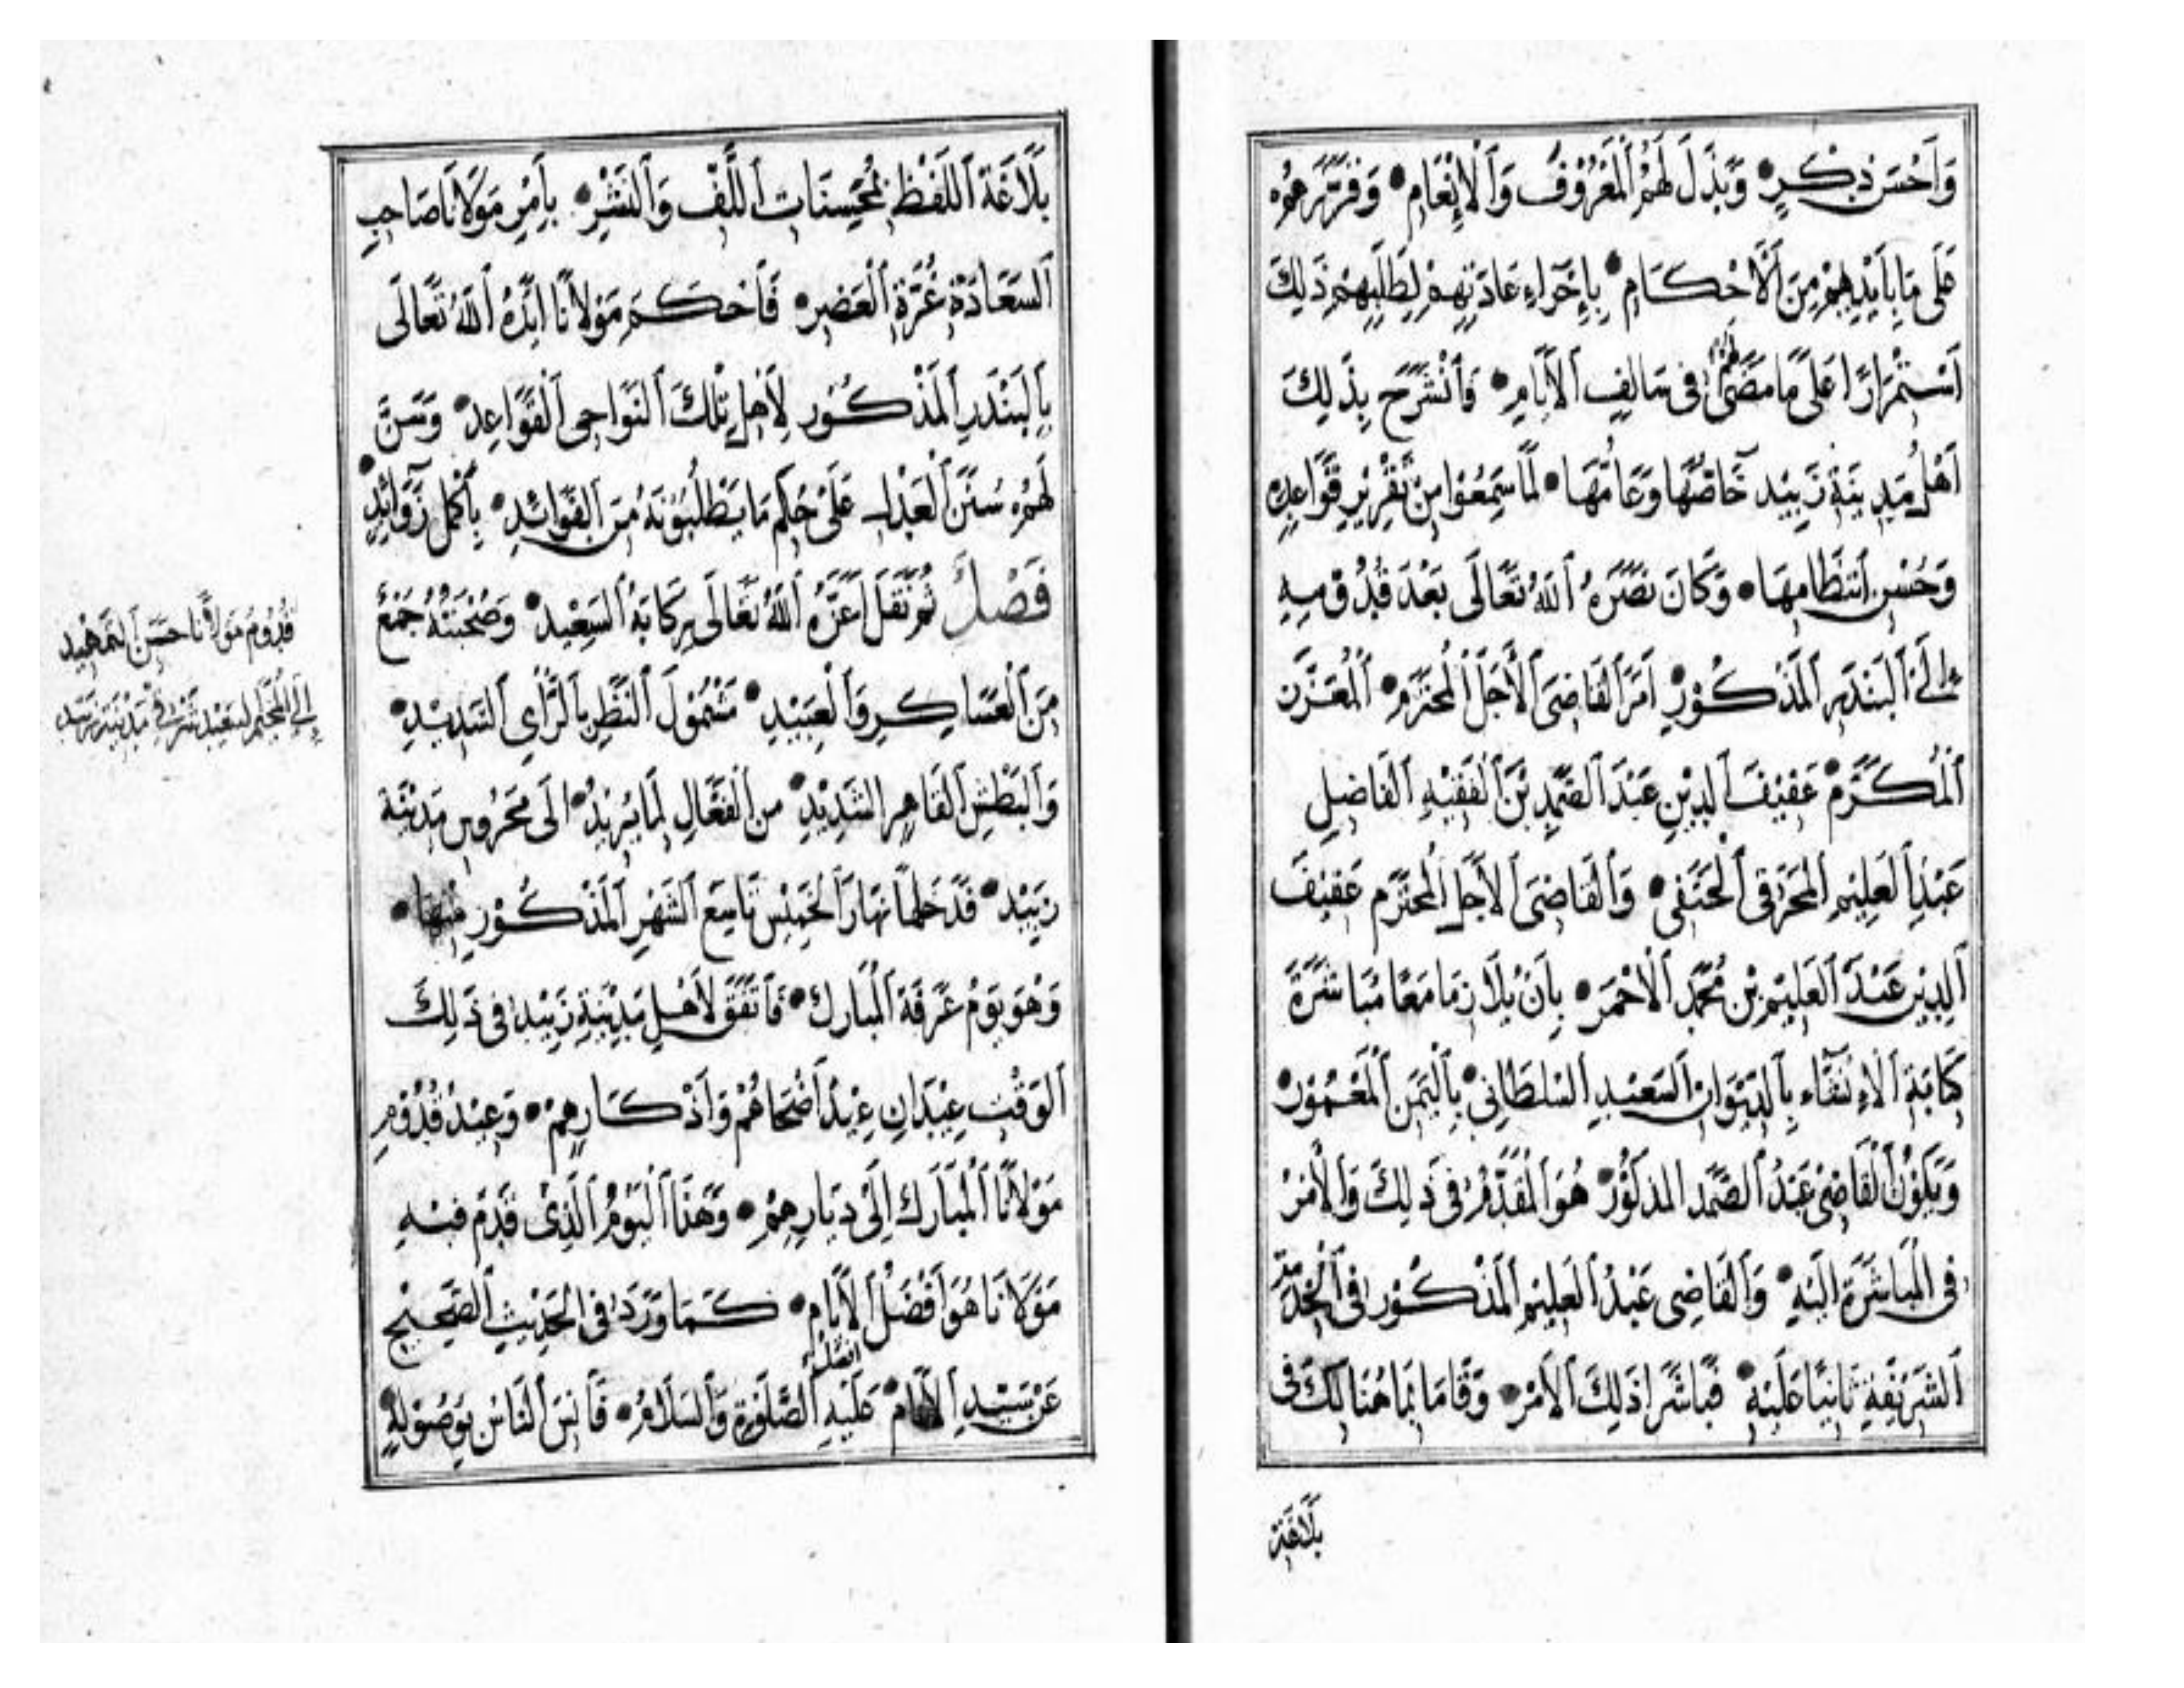 وَأَحْسَنَ ذِكْرٍ وَبَذَلَ لَهُمُ ٱلْمَعْرُوفَ وَٱلْإِنْعَامِ وَقَرَّرَهُمْ
عَلَى مَا بِأَيْدِيهِمْ مِنَ ٱلْأَحْكَامِ بِإِجْرَاءِ عَادَتِهِمْ لِطَلَبِهِمْ ذَلِكَ
ٱسْتِمْرَارًا عَلَى مَا مَضَى لَهُمْ فِى سَالِفِ ٱلْأَيَّامِ فَٱنْشَرَحَ بِذَلِكَ
أَهْلُ مَدِينَةِ زَبِيْد خَاصُّهَا وَعَامُّهَا لَمَّا سَمِعُوا مِنْ تَقْرِيْرِ قَوَاعِدِهِ
وَحُسْنِ ٱنْتِظَامِهَا وَكَانَ نَصَرَهُ ٱللهُ تَعَالَى بَعْدَ قُدُومِهِ
إِلَى ٱلْبَنْدَرِ ٱلْمَذْكُوْرِ أَمَرَ ٱلْقَاضِيَ ٱلْأَجَلَّ ٱلْمُحْتَرَمَ ٱلْمُعَزَّزَ
ٱلْمُكَرَّمَ عَفِيْفَ ٱلدِّيْنِ عَبْدَ ٱلصَّمَدِ بْنَ ٱلْفَقِيْهِ ٱلْفَاضِلِ
عَبْدِ ٱلْعَلِيْمِ ٱلْمَحْرَقِى ٱلْحَنَفِى وَٱلْقَاضِىَ ٱلْأَجَلَّ ٱلْمُحْتَرَمَ عَفِيْفَ
ٱلدِّيْنِ عَبْدَ ٱلْعَلِيْمِ بْنَ مُحَمَّد ٱلْأَحْمَرَ بِأَنْ يُلَازِمَا مَعًا مُبَاشَرَةً
كِتَابَةَ ٱلْإِنْشَاءِ بِٱلدِّيْوَانِ ٱلسَّعِيْدِ ٱلسُّلْطَانِي بِٱلْيَمَنِ ٱلْمَعْمُوْرِ
وَيَكُوْنُ ٱلْقَاضِىْ عَبْدُ ٱلصَّمَدِ ٱلْمَذْكُوْرُ هُوَ ٱلْمُقَدَّمُ فِى ذَلِكَ وَٱلْأَمْرُ
فِى ٱلْمُبَاشَرَةِ إِلَيْهِ وَٱلْقَاضِى عَبْدُ ٱلْعَلِيْمِ ٱلْمَذْكُوْرُ فِى ٱلْخِدْمَةِ
ٱلشَّرِيْفَةِ ثَانِيًا عَلَيْهِ فَبَاشَرَا ذَلِكَ ٱلْأَمْرَ وَقَامَا بِمَا هُنَالِكَ فِى
بَلَاغَة
بَلَاغَةِ ٱللَّفْظِ بِمُحَسِّنَاتِ ٱللَّفِّ وَٱلنَّشْرِ بِأَمْرِ مَوْلَانَا صَاحِبِ
ٱلسَّعَادَةِ غُرَّةِ ٱلْعَصْرِ فَأَحْكَمَ مَوْلَانَا أَيَّدَهُ ٱللهُ تَعَالَى
بِٱلْبَنْدَرِ ٱلْمَذْكُوْرِ لِأَهْلِ تِلْكَ ٱلنَّوَاحِى ٱلْقَوَاعِدَ وَسَنَّ
لَهُمْ سُنَنَ ٱلْعَدْلِ عَلَى حُكْمِ مَا يَطْلُبُوْنَهُ مِنَ ٱلْفَوَائِدِ بِأَكْمَلِ زَوَائِدٍ
فَصْلٌ ثُمَّ نَقَلَ أَعَزَّهُ ٱللهُ تَعَالَى بِرِكَابِهِ ٱلسَّعِيْدِ وَصُحْبَتُهُ جَمْعٌ
مِنَ ٱلْعَسَاكِرِ وَٱلْعَبِيْدِ مَشْمُوْلَ ٱلنَّظَرِ بِٱلرَّأْيِ ٱلسَّدِيْدِ
وَٱلْبَطْشِ ٱلْقَاهِرِ ٱلشَّدِيْدِ مِنَ ٱلْفَعَّالِ لِمَا يُرِيْدُ إِلَى مَحْرُوسِ مَدِيْنَةِ
زَبِيْد فَدَخَلَهَا نَهَارَ ٱلْخَمِيْسِ تَاسِعَ ٱلشَّهْرِ ٱلْمَذْكُوْرِ مِنْهَا
وَهُوَ يَوْمُ عَرَفَةَ ٱلْمُبَارَك فَٱتَّفَقَ لِأَهْلِ مَدِيْنَةِ زَبِيْد فِى ذَلِكَ
ٱلْوَقْتِ عِيْدَانِ عِيْدُ أَضْحَاهُمْ وَأَذْكَارِهِمْ وَعِيْدُ قُدُوْمِ
مَوْلَانَا ٱلْمُبَارَكِ إِلَى دِيَارِهِمْ وَهَذَا ٱلْيَوْمُ ٱلَّذِىْ قَدِمَ فِيْهِ
مَوْلَانَا هُوَ أَفْضَلُ ٱلْأَيَّامِ كَمَا وَرَدَ فِى ٱلْحَدِيْثِ ٱلصَّحِيْحِ
عَنْ سَيِّدِ ٱلْأَنَامِ عَلَيْهِ أَفْضَلُ ٱلصَّلٰوةِ وَٱلسَّلَامُ فَأَنِسَ ٱلنَّاسُ بِوُصُوْلِهِ
قُدُوْمُ مَوْلَانَا حَسَنَ ٱلتَّمْهِيْد
إِلَى ٱلْمُخَيَّمِ ٱلسَّعِيْد فِي مَدِيْنَةِ زَبِيْد